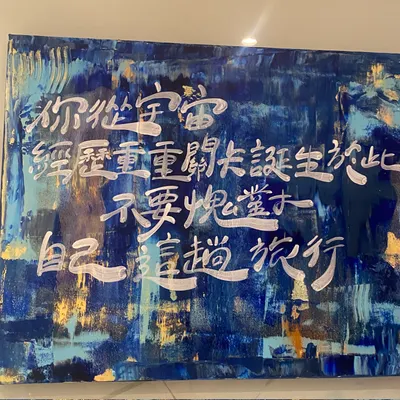 你從宇宙
經歷重重關卡誕生於此
不要愧對
自己這趟旅行